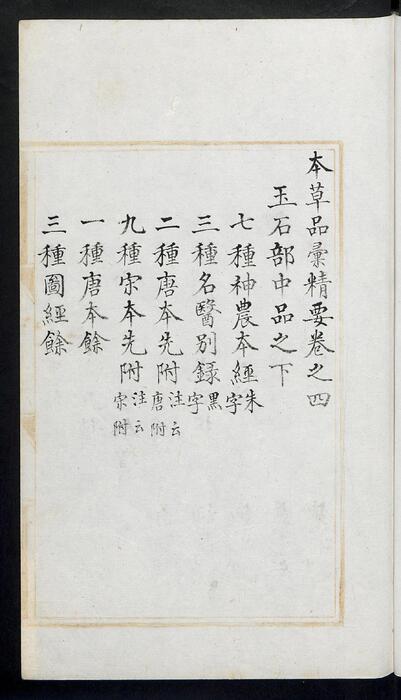 本草品彙精要卷之四
玉石部中品之下
七種神農本經朱字
三種名醫別録黑字
二種唐本先附注云唐附
九種宋本先附注云宋附
一種唐本餘
三種圖經餘